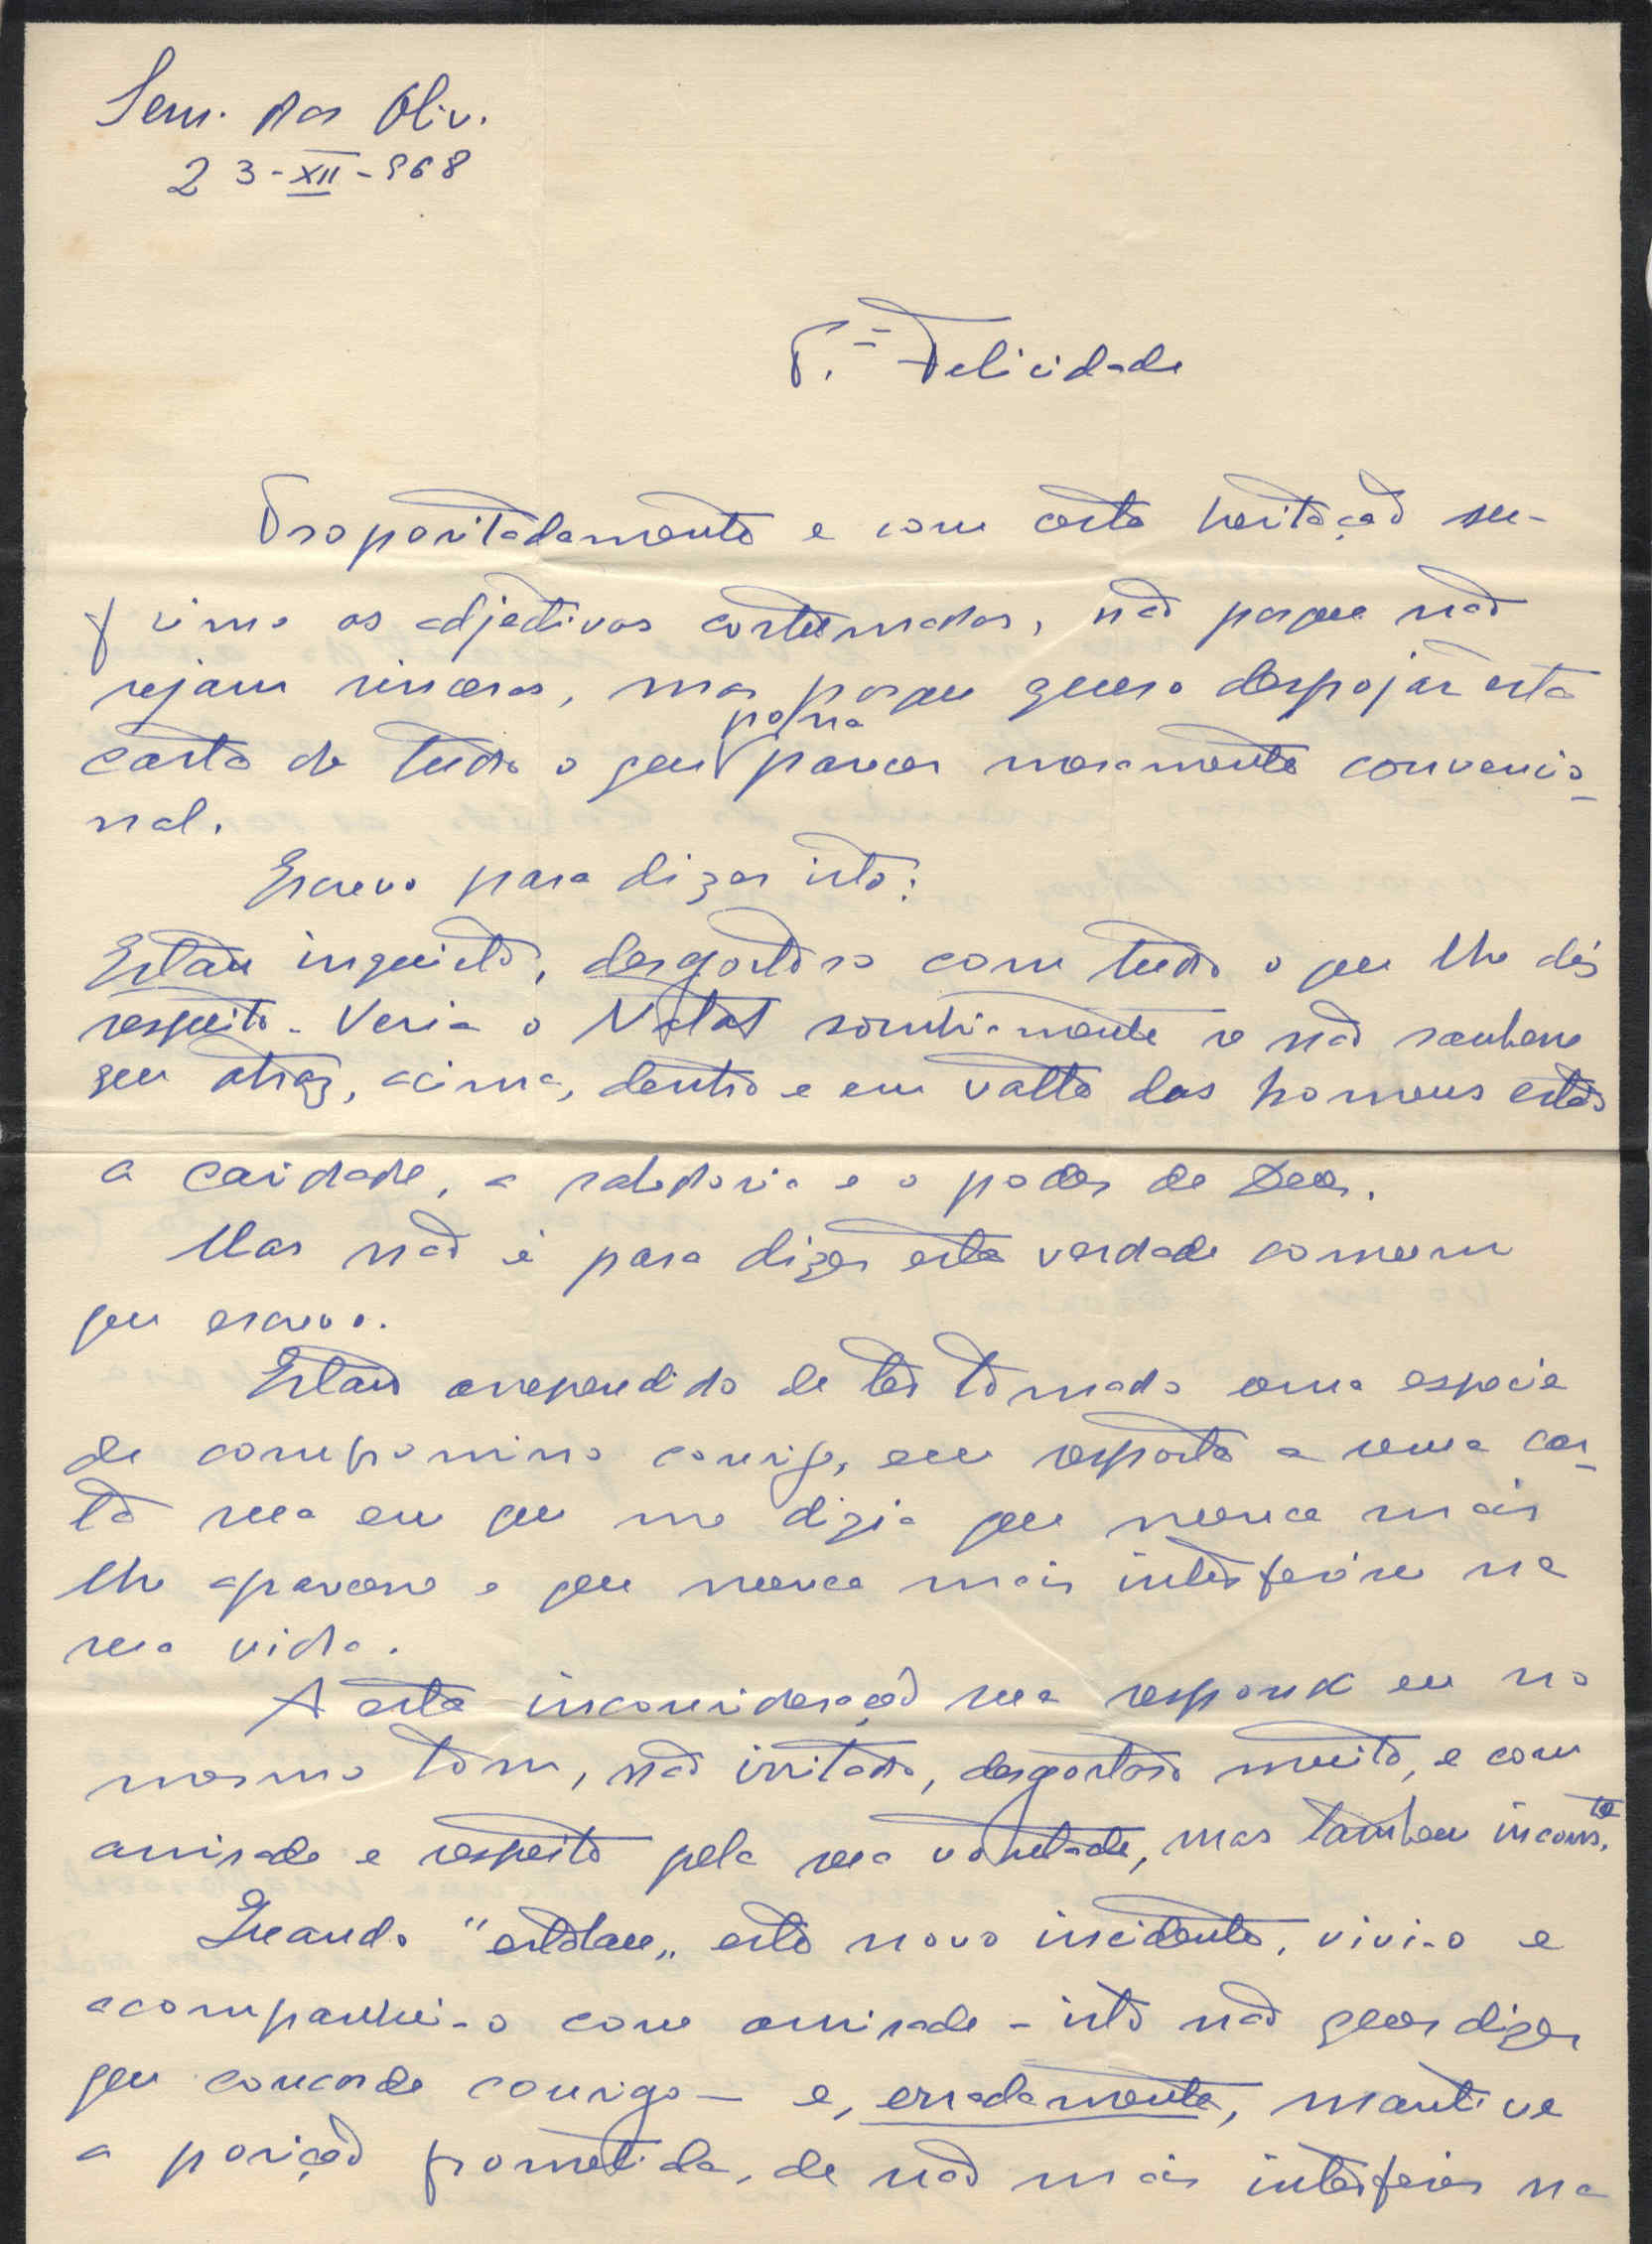 Sem. dos Oliv.
23-XII-968
P.e Felicidade
Propositadamente e com certa hesitação su-
primo os adjectivos costumados, não porque não
sejam sinceros, mas porque quero despojar esta
carta de tudo o que possa parecer meramente convencio-
nal.
Escrevo para dizer isto:
Estou inquieto, desgostoso com tudo o que lhe diz
respeito. Veria o Natal sombriamente se não soubesse
que atraz, acima, dentro e em volta dos homens está
a caridade, a sabedoria e o poder de Deus.
Mas não é para dizer esta verdade comum
que escrevo.
Estou arrependido de ter tomado uma espécie
de compromisso consigo, em resposta a uma car-
ta sua em que me dizia que nunca mais
lhe aparecesse e que nunca mais interferisse na
sua vida.
A esta inconsideração sua respondi eu no
mesmo tom, não irritado, desgostoso muito, e com
amizade e respeito pela sua vontade, mas tambem incons.te
Quando "estolou" este novo incidente, vivi-o e
acompanhei-o com amizade - isto não quer dizer
que concorde consigo - e, erradamente, mantive
a posição prometida, de não mais interferir na